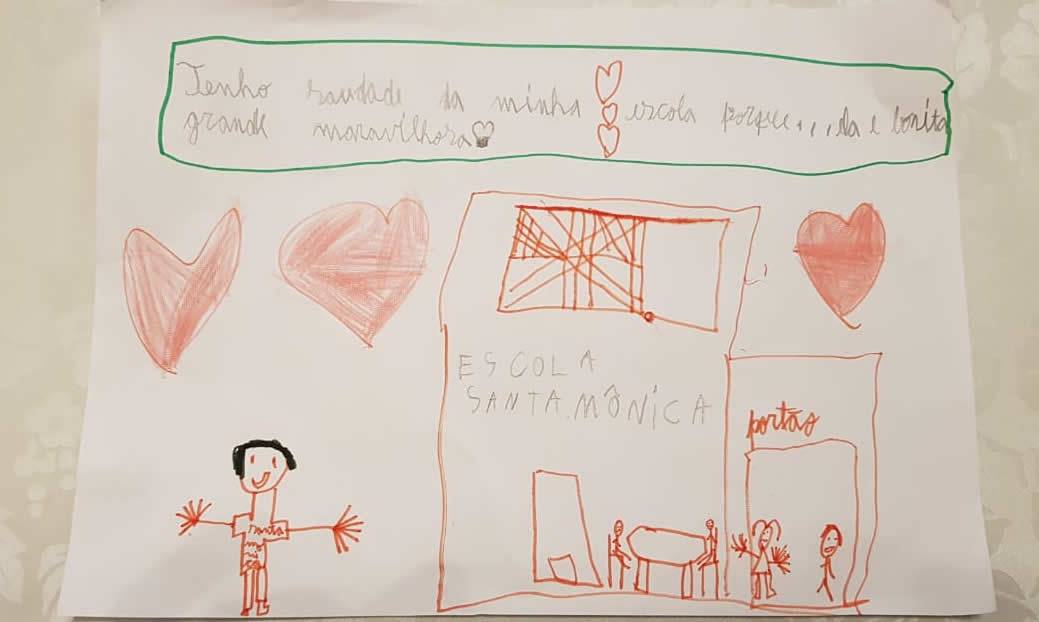 Tenho saudade da minha escola porque...ela e bonita
grande maravilhosa
ESCOLA
SANTA.MÔNICA
portão
santa